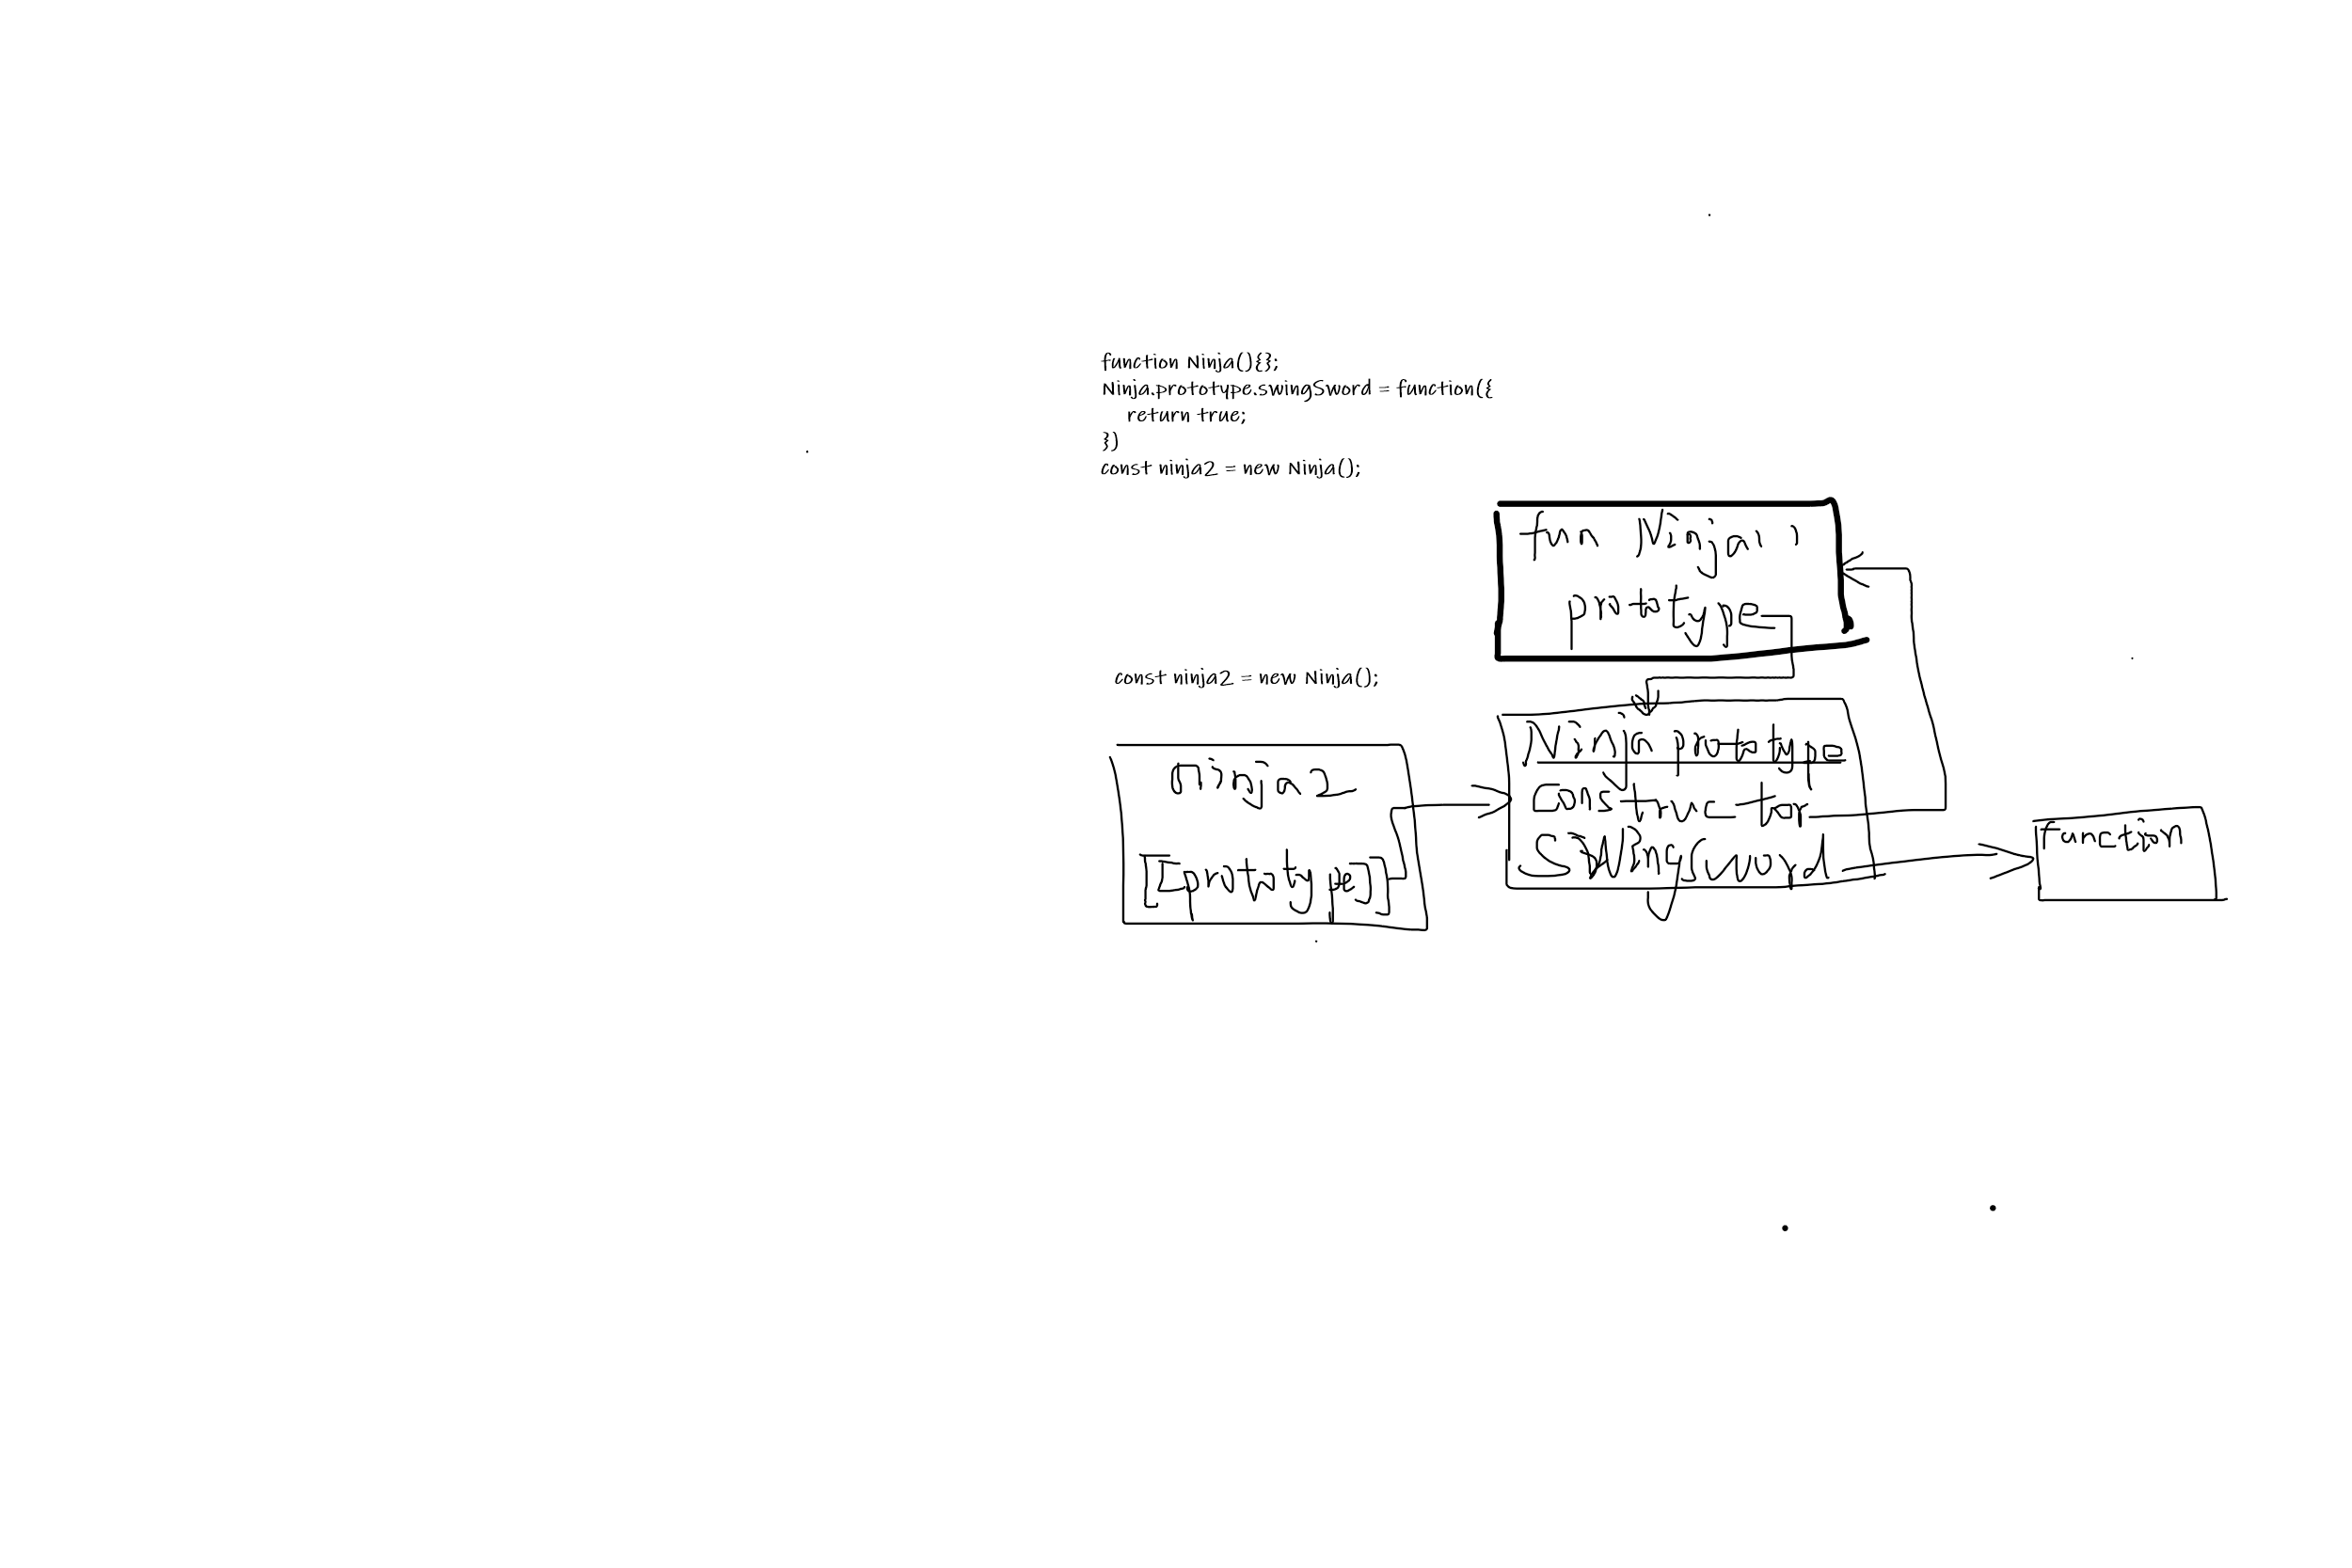 function Ninja(){};
Ninja.prototype.swingSword = function({
return true;
})
const ninja2 = new Ninja();
fun Ninja()
prototype
const ninja2 = new Ninja();
Ninja prototype
constructor
swingsword
ninja2
[[prototype]]
function